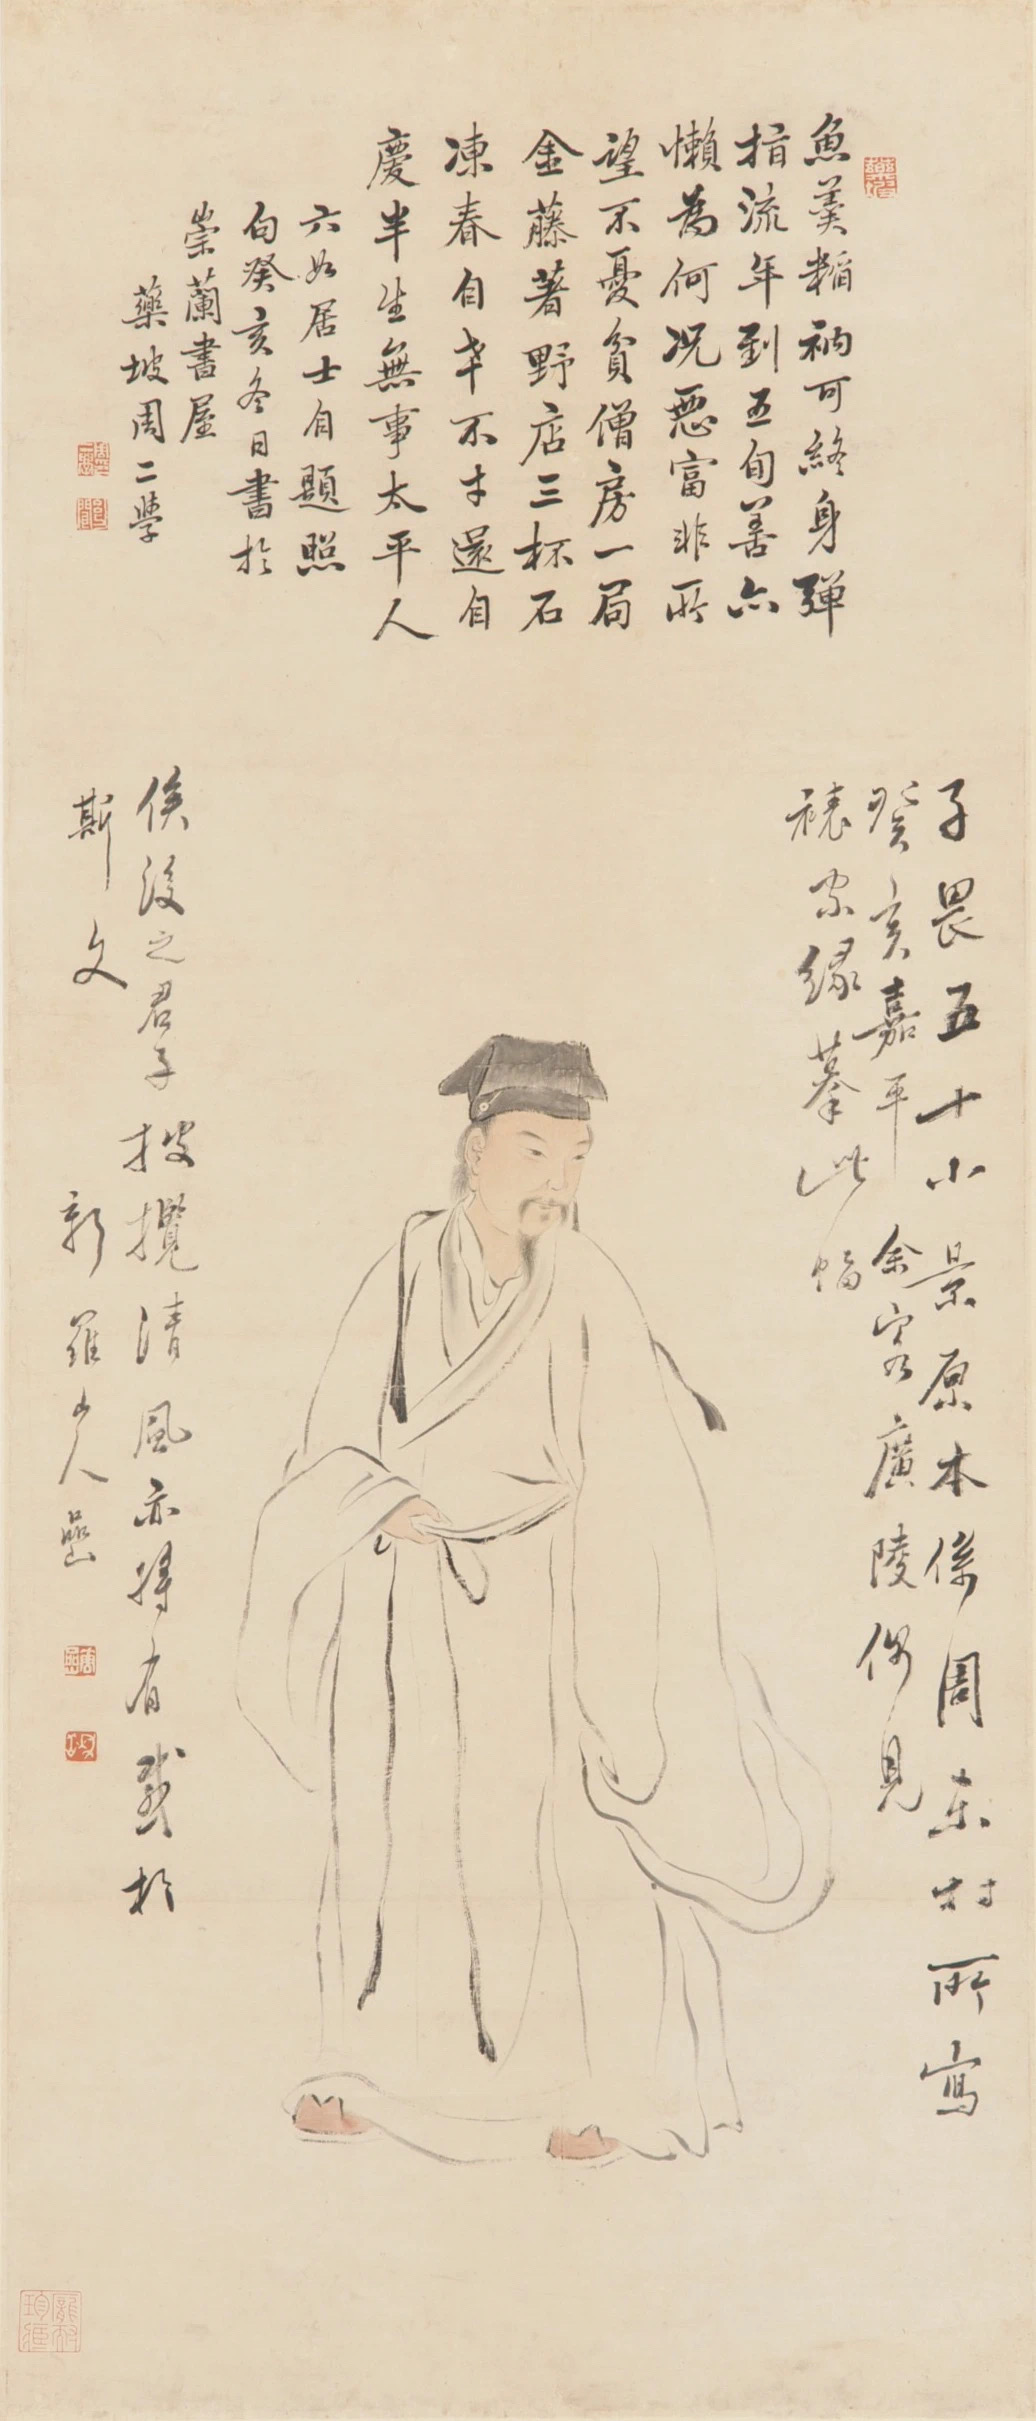 魚羹稻衲可終身彈
指流年到五旬善亦
懶為何況惡富非所
望不憂貧僧房一局
金藤著野店三杯石
凍春自幸不才還自
慶半生無事太平人
六如居士自題照
句癸亥冬日書於
崇蘭書屋
藥坡周二學
子畏五十小景原本係周東村所寫
癸亥嘉平余客廣陵偶見
裱家緣摹此幅
俟後之君子披攬清風亦將有感於
斯文
新羅山人嵒